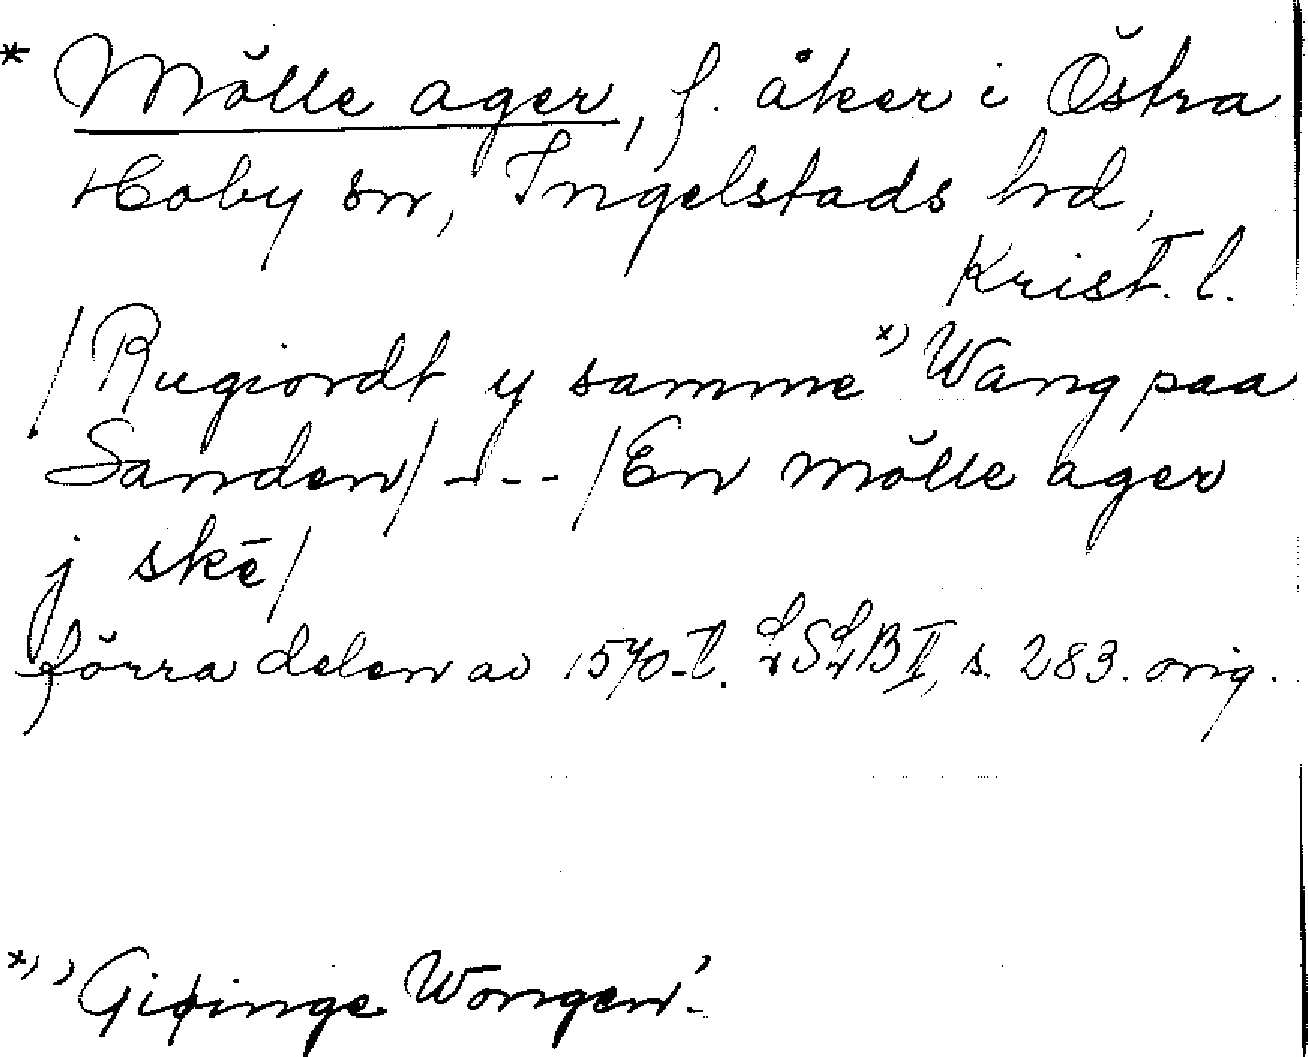 * Mölle ager, f. åker i Östra
Hoby sn, Ingelstads hd,
Krist. l.
/Rugiordt y samme *) Wang paa
Sanden/ - - - /En mölle ager
j skē/
förra delen av 1570-t. LSLB II, s. 283. orig.
*) 'Gisinge Wongen'.